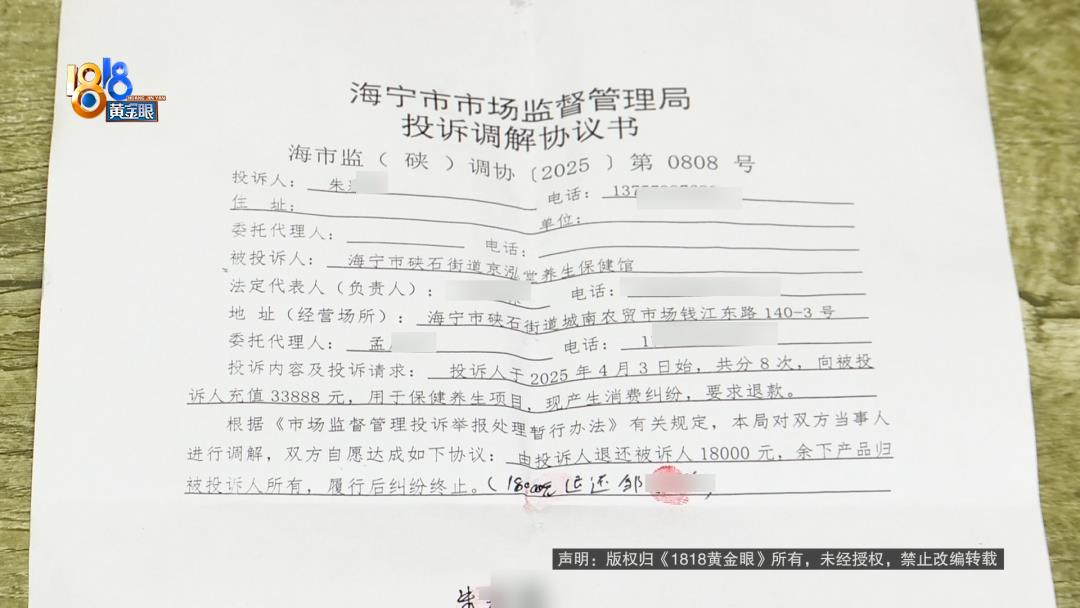 1818
黄金眼
HUANG JIN YAN
海宁市市场监督管理局
投诉调解协议书
海市监（硖）调协〔2025〕第 0808 号
投诉人： 朱 电话：
住 址： 单位：
委托代理人： 电话：
被投诉人： 海宁市硖石街道京泓堂养生保健馆
法定代表人（负责人）： 电话：
地 址（经营场所）： 海宁市硖石街道城南农贸市场钱江东路 140-3 号
委托代理人： 孟 电话： 1
投诉内容及投诉请求： 投诉人于 2025 年 4 月 3 日始，共分 8 次，向被投
诉人充值 33888 元，用于保健养生项目，现产生消费纠纷，要求退款。
根据《市场监督管理投诉举报处理暂行办法》有关规定，本局对双方当事人
进行调解，双方自愿达成如下协议： 由投诉人退还被诉人 18000 元，余下产品归
被投诉人所有，履行后纠纷终止。（18000元 还 邹
声明：版权归《1818黄金眼》所有，未经授权，禁止改编转载
朱